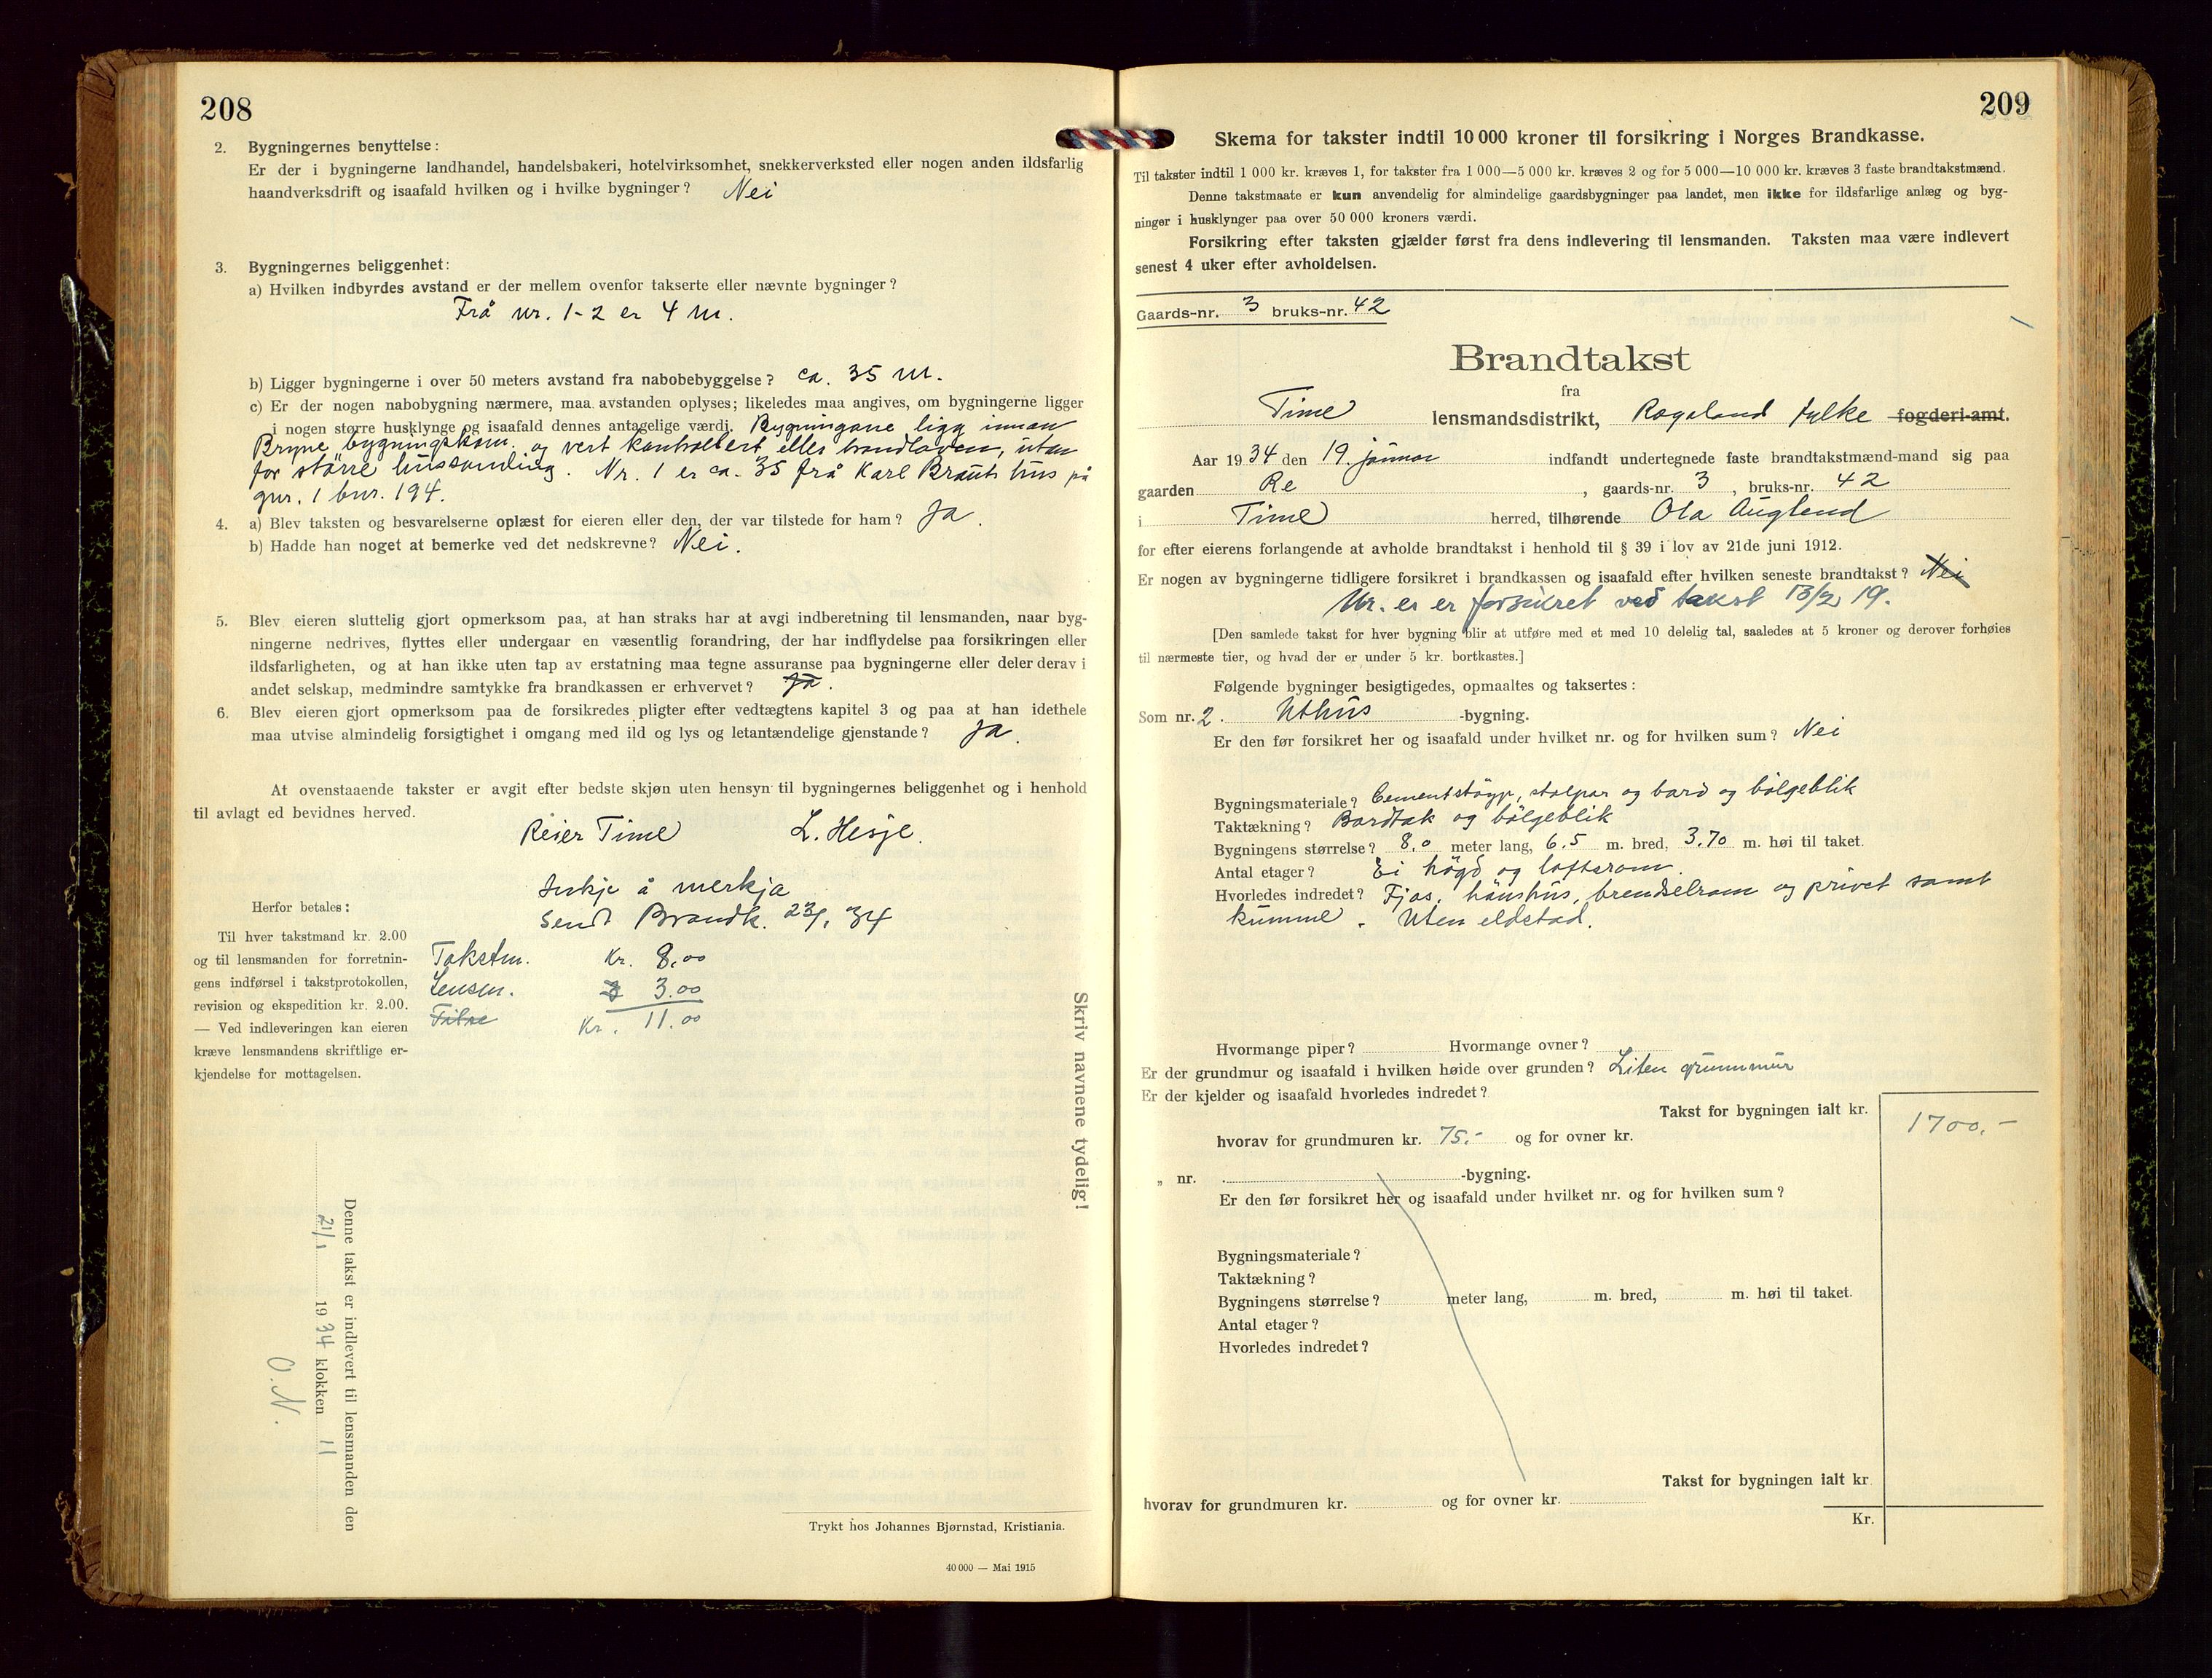 208
2. Bygningernes benyttelse:
Er der i bygningerne landhandel, handelsbakeri, hotelvirksomhet, snekkerverksted eller nogen anden ildsfarlig
haandverksdrift og isaafald hvilken og i hvilke bygninger? Nei
3. Bygningernes beliggenhet:
a) Hvilken indbyrdes avstand er der mellem ovenfor takserte eller nævnte bygninger?
Frå nr. 1-2 er 4 m.
b) Ligger bygningerne i over 50 meters avstand fra nabobebyggelse? ca. 35 m.
c) Er der nogen nabobygning nærmere, maa avstanden oplyses; likeledes maa angives, om bygningerne ligger
i nogen større husklynge og isaafald dennes antagelige værdi. Bygningane ligg innan
Bryne bygningskom. og vert kontrollert etter brandloven, utan
for större hussamling. Nr. 1 er ca. 35 frå Karl Brauts hus på
gnr. 1 bnr. 194.
4. a) Blev taksten og besvarelserne oplæst for eieren eller den, der var tilstede for ham? Ja.
b) Hadde han noget at bemerke ved det nedskrevne? Nei.
5. Blev eieren sluttelig gjort opmerksom paa, at han straks har at avgi indberetning til lensmanden, naar byg-
ningerne nedrives, flyttes eller undergaar en væsentlig forandring, der har indflydelse paa forsikringen eller
ildsfarligheten, og at han ikke uten tap av erstatning maa tegne assuranse paa bygningerne eller deler derav i
andet selskap, medmindre samtykke fra brandkassen er erhvervet? Ja.
6. Blev eieren gjort opmerksom paa de forsikredes pligter efter vedtægtens kapitel 3 og paa at han idethele
maa utvise almindelig forsigtighet i omgang med ild og lys og letantændelige gjenstande? Ja.
At ovenstaaende takster er avgit efter bedste skjøn uten hensyn til bygningernes beliggenhet og i henhold
til avlagt ed bevidnes herved.
Reier Time L. Hesje.
Inkje å merkja
Sendt Brandk. 23/1 34
Herfor betales:
Til hver takstmand kr. 2.00
og til lensmanden for forretnin-
gens indførsel i takstprotokollen,
revision og ekspedition kr. 2.00.
— Ved indleveringen kan eieren
kræve lensmandens skriftlige er-
kjendelse for mottagelsen.
Takstm. Kr. 8.00
Lensm. 3.00
Kr. 11.00
Skriv navnene tydelig!
Denne takst er indlevert til lensmanden den
21/1 1934 klokken 11
O.N.
Trykt hos Johannes Bjørnstad, Kristiania.
40 000 — Mai 1915
209
Skema for takster indtil 10 000 kroner til forsikring i Norges Brandkasse.
Til takster indtil 1 000 kr. kræves 1, for takster fra 1 000—5 000 kr. kræves 2 og for 5 000—10 000 kr. kræves 3 faste brandtakstmænd.
Denne takstmaate er kun anvendelig for almindelige gaardsbygninger paa landet, men ikke for ildsfarlige anlæg og byg-
ninger i husklynger paa over 50 000 kroners værdi.
Forsikring efter taksten gjælder først fra dens indlevering til lensmanden. Taksten maa være indlevert
senest 4 uker efter avholdelsen.
Gaards-nr. 3 bruks-nr. 42
Brandtakst
fra
Time lensmandsdistrikt, Rogaland fylke fogderi-amt.
Aar 1934 den 19. januar indfandt undertegnede faste brandtakstmænd-mand sig paa
gaarden Re, gaards-nr. 3, bruks-nr. 42
i Time herred, tilhørende Ola Auglend
for efter eierens forlangende at avholde brandtakst i henhold til § 39 i lov av 21de juni 1912.
Er nogen av bygningerne tidligere forsikret i brandkassen og isaafald efter hvilken seneste brandtakst? Nei
Nr. er er forsikret ved takst 13/2 19.
[Den samlede takst for hver bygning blir at utføre med et med 10 delelig tal, saaledes at 5 kroner og derover forhøies
til nærmeste tier, og hvad der er under 5 kr. bortkastes.]
Følgende bygninger besigtigedes, opmaaltes og taksertes:
Som nr. 2. Uthus -bygning.
Er den før forsikret her og isaafald under hvilket nr. og for hvilken sum? Nei
Bygningsmateriale? Cementstöyp, stolpar og bord og bölgeblik
Taktækning? Bordtak og bölgeblik
Bygningens størrelse? 8,0 meter lang, 6.5 m. bred, 3.70 m. høi til taket.
Antal etager? Ei högd og loftsrom.
Hvorledes indredet? Fjos, hönshus, brendselrom og privet samt
kumme. Uten eldstad.
Hvormange piper? Hvormange ovner?
Er der grundmur og isaafald i hvilken høide over grunden? Liten grunnmur
Er der kjelder og isaafald hvorledes indredet?
Takst for bygningen ialt kr. 1700.-
hvorav for grundmuren kr. 75.- og for ovner kr.
„ nr. -bygning.
Er den før forsikret her og isaafald under hvilket nr. og for hvilken sum?
Bygningsmateriale?
Taktækning?
Bygningens størrelse? meter lang, m. bred, m. høi til taket.
Antal etager?
Hvorledes indredet?
Takst for bygningen ialt kr
hvorav for grundmuren kr. og for ovner kr.
Kr.